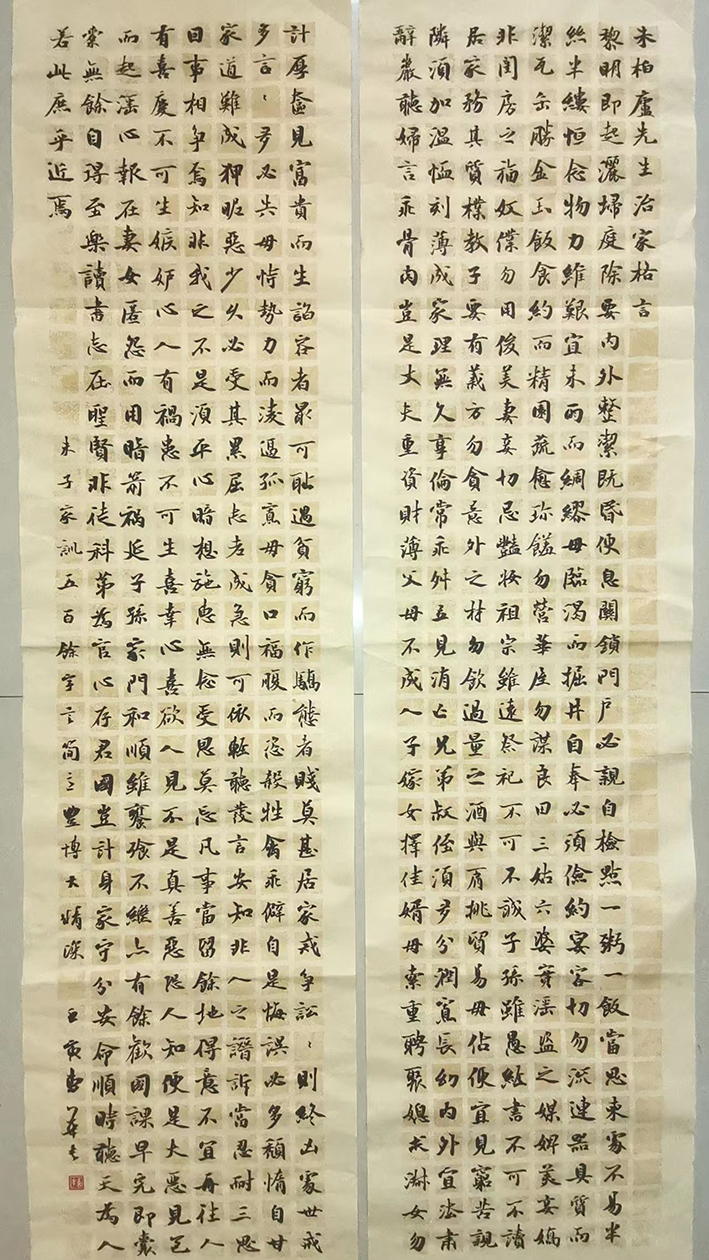 朱柏廬先生治家格言
黎明即起灑埽庭除要內外整潔既昏便息關鎖門戶必親自檢點一粥一飯當思來處不易半
絲半縷恒念物力維艱宜未雨而綢繆毋臨渴而掘井自奉必須儉約宴客切勿流連器具質而
潔瓦缶勝金玉飯食約而精園蔬愈珍饈勿營華屋勿謀良田三姑六婆實淫盜之媒婢美妾嬌
非閨房之福奴僕勿用俊美妻妾切忌豔妝祖宗雖遠祭祀不可不誠子孫雖愚經書不可不讀
居家務其質樸教子要有義方勿貪意外之財勿飲過量之酒與肩挑貿易毋佔便宜見窮苦親
隣須加溫恤刻薄成家理無久享倫常乖舛立見消亡兄弟叔侄須多分潤寡長幼內外宜法肅
辭嚴聽婦言乖骨肉豈是丈夫重資財薄父母不成人子嫁女擇佳婿毋索重聘娶媳求淑女勿
計厚奩見富貴而生諂容者最可恥遇貧窮而作驕態者賤莫甚居家戒爭訟〻則終凶處世戒
多言〻多必失毋恃勢力而凌逼孤寡毋貪口福腹而恣殺牲禽乖僻自是悔誤必多頹惰自甘
家道難成狎昵惡少久必受其累屈志老成急則可依輕聽發言安知非人之譖訴當忍耐三思
因事相爭焉知非我之不是須平心暗想施惠無念受恩莫忘凡事當留餘地得意不宜再往人
有喜慶不可生嫉妒心人有禍患不可生喜幸心喜欲人見不是真善惡恐人知便是大惡見色
而起淫心報在妻女匿怨而用暗箭禍延子孫家門和順雖饔飧不繼亦有餘歡國課早完即囊
橐無餘自得至樂讀書志在聖賢非徒科第為官心存君國豈計身家守分安命順時聽天為人
若此庶乎近焉
朱子家訓五百餘字言簡意豐博大精深